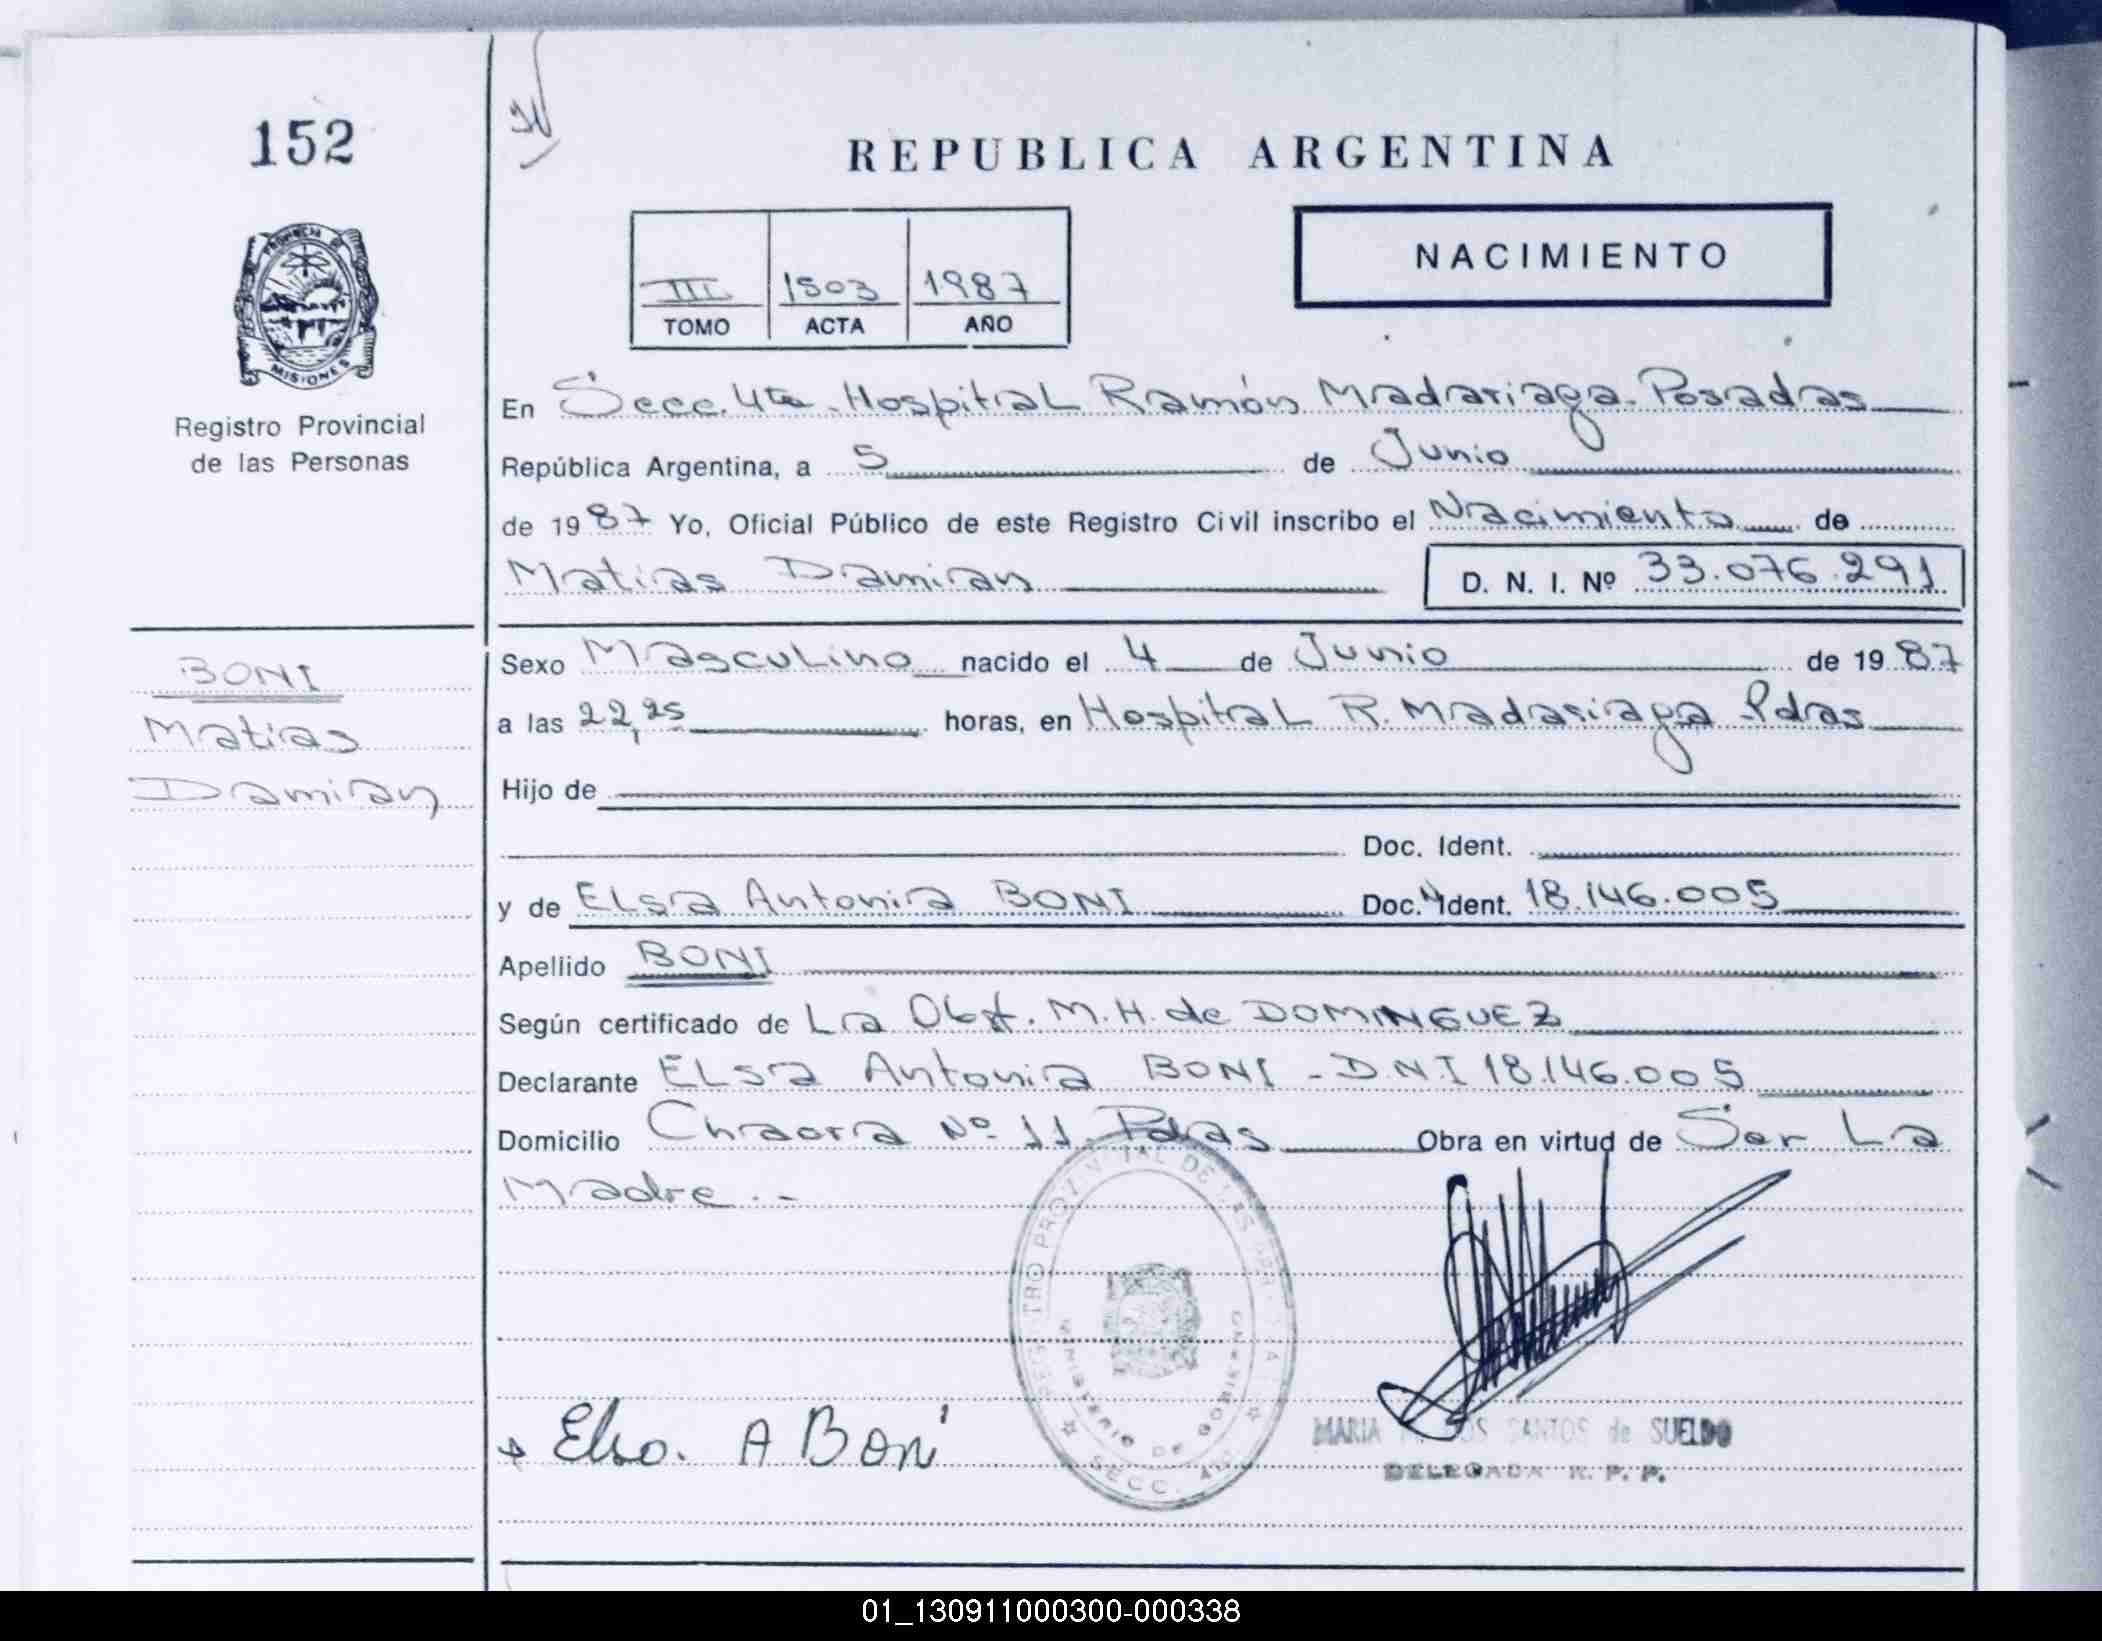 152
REPUBLICA ARGENTINA
PROVINCIA DE
MISIONES
Registro Provincial
de las Personas
III 1503 1987
TOMO ACTA AÑO
NACIMIENTO
En Secc. 4ta. Hospital Ramón Madariaga - Posadas
República Argentina, a 5 de Junio
de 1987 Yo, Oficial Público de este Registro Civil inscribo el Nacimiento de
Matias Damian D. N. I. Nº 33.076.291
BONI
Matias
Damian
Sexo Masculino nacido el 4 de Junio de 1987
a las 22,25 horas, en Hospital R. Madariaga - Pdas
Hijo de
Doc. Ident.
y de Elsa Antonia BONI Doc. Ident. 18.146.005
Apellido BONI
Según certificado de La Obst. M. H. de DOMINGUEZ
Declarante Elsa Antonia BONI - D.N.I 18.146.005
Domicilio Chacra Nº 11. Pdas Obra en virtud de Ser La
Madre. -
REGISTRO PROVINCIAL DE LAS PERSONAS
MINISTERIO DE GOBIERNO
SECC. 4ta
Elsa. A Boni
MARIA DOS SANTOS de SUELDO
DELEGADA R. P. P.
01_130911000300-000338